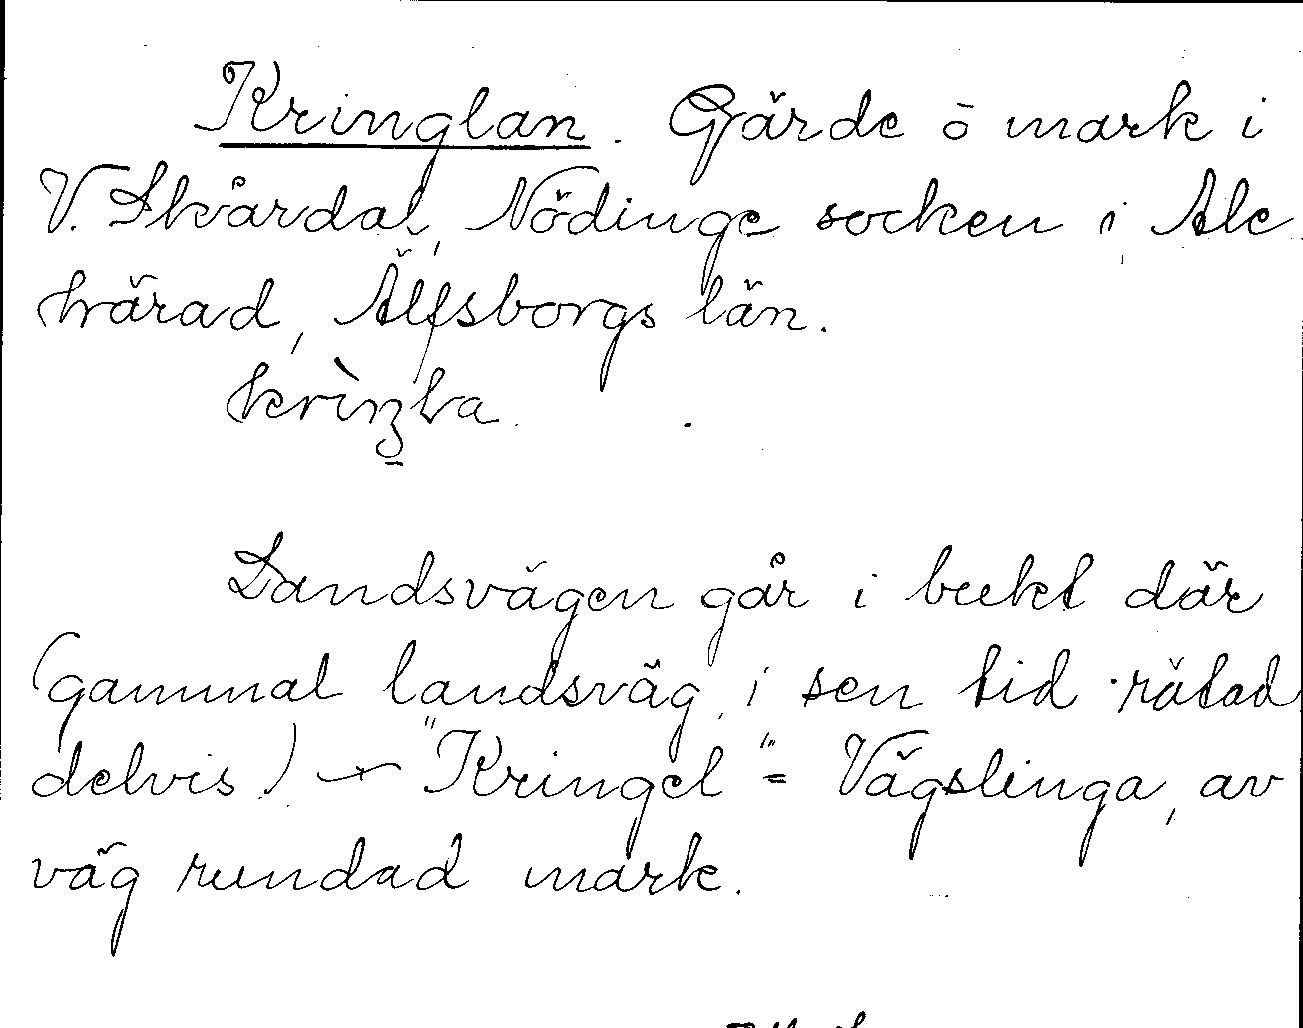 Kringlan. Gärde ō mark i
V. Skårdal, Nödinge socken i Ale
härad, Älfsborgs län.
Landsvägen går i bukt där
(gammal landsväg, i sen tid rätad
delvis) "Kringel" = Vägslinga, av
väg rundad mark.